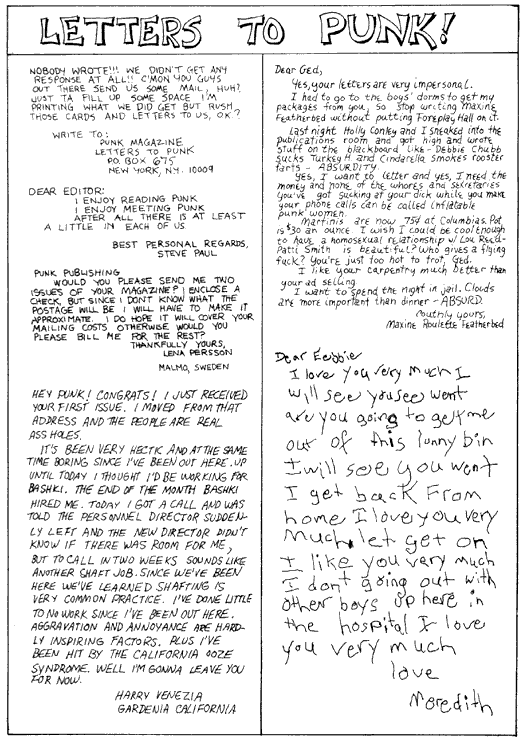 LETTERS TO PUNK!
NOBODY WROTE!!! WE DIDN'T GET ANY
RESPONSE AT ALL!! C'MON YOU GUYS
OUT THERE SEND US SOME MAIL, HUH?
JUST TA FILL UP SOME SPACE I'M
PRINTING WHAT WE DID GET BUT RUSH
THOSE CARDS AND LETTERS TO US, O.K.?
WRITE TO:
PUNK MAGAZINE
LETTERS TO PUNK
P.O. BOX 675
NEW YORK, N.Y. 10009
DEAR EDITOR:
I ENJOY READING PUNK
I ENJOY MEETING PUNK
AFTER ALL THERE IS AT LEAST
A LITTLE IN EACH OF US
BEST PERSONAL REGARDS,
STEVE PAUL
PUNK PUBLISHING
WOULD YOU PLEASE SEND ME TWO
ISSUES OF YOUR MAGAZINE? I ENCLOSE A
CHECK, BUT SINCE I DON'T KNOW WHAT THE
POSTAGE WILL BE I WILL HAVE TO MAKE IT
APPROXIMATE. I DO HOPE IT WILL COVER YOUR
MAILING COSTS OTHERWISE WOULD YOU
PLEASE BILL ME FOR THE REST?
THANKFULLY YOURS,
LENA PERSSON
MALMO, SWEDEN
HEY PUNK! CONGRATS! I JUST RECEIVED
YOUR FIRST ISSUE. I MOVED FROM THAT
ADDRESS AND THE PEOPLE ARE REAL
ASS HOLES.
IT'S BEEN VERY HECTIC AND AT THE SAME
TIME BORING SINCE I'VE BEEN OUT HERE. UP
UNTIL TODAY I THOUGHT I'D BE WORKING FOR
BASHKI. THE END OF THE MONTH BASHKI
HIRED ME. TODAY I GOT A CALL AND WAS
TOLD THE PERSONNEL DIRECTOR SUDDEN-
LY LEFT AND THE NEW DIRECTOR DIDN'T
KNOW IF THERE WAS ROOM FOR ME,
BUT TO CALL IN TWO WEEKS SOUNDS LIKE
ANOTHER SHAFT JOB. SINCE WE'VE BEEN
HERE WE'VE LEARNED SHAFTING IS
VERY COMMON PRACTICE. I'VE DONE LITTLE
TO NO WORK SINCE I'VE BEEN OUT HERE.
AGGRAVATION AND ANNOYANCE ARE HARD-
LY INSPIRING FACTORS. PLUS I'VE
BEEN HIT BY THE CALIFORNIA OOZE
SYNDROME. WELL I'M GONNA LEAVE YOU
FOR NOW.
HARRY VENEZIA
GARDENIA CALIFORNIA
Dear Ged,
Yes, your letters are very impersonal.
I had to go to the boys' dorms to get my
packages from you, so stop writing Maxine
Featherbed without putting Foreplay Hall on it.
Last night Holly Conley and I sneaked into the
publications room and got high and wrote
stuff on the blackboard like - Debbie Chubb
sucks Turkey H and Cindarella smokes rooster
farts - ABSURDITY
Yes, I want to letter and yes, I need the
money and none of the whores and secretaries
you've got sucking at your dick while you make
your phone calls can be called inflatable
punk women.
Martinis are now 75¢ at Columbias. Pot
is $30 an ounce. I wish I could be cool enough
to have a homosexual relationship w/ Lou Reed-
Patti Smith is beautiful? Who gives a flying
fuck? You're just too hot to trot, Ged.
I like your carpentry much better than
your ad selling.
I want to spend the night in jail. Clouds
are more important than dinner - ABSURD.
Mouthly yours,
Maxine Roulette Featherbed
Dear Eebbie
I love you very much I
will see you see went
are you going to get me
out of this lunny bin
I will see you went
I get back From
home I love you very
Much let get on
I like you vary much
I don't going out with
other boys up here in
the hospital I love
you very much
love
Meredith